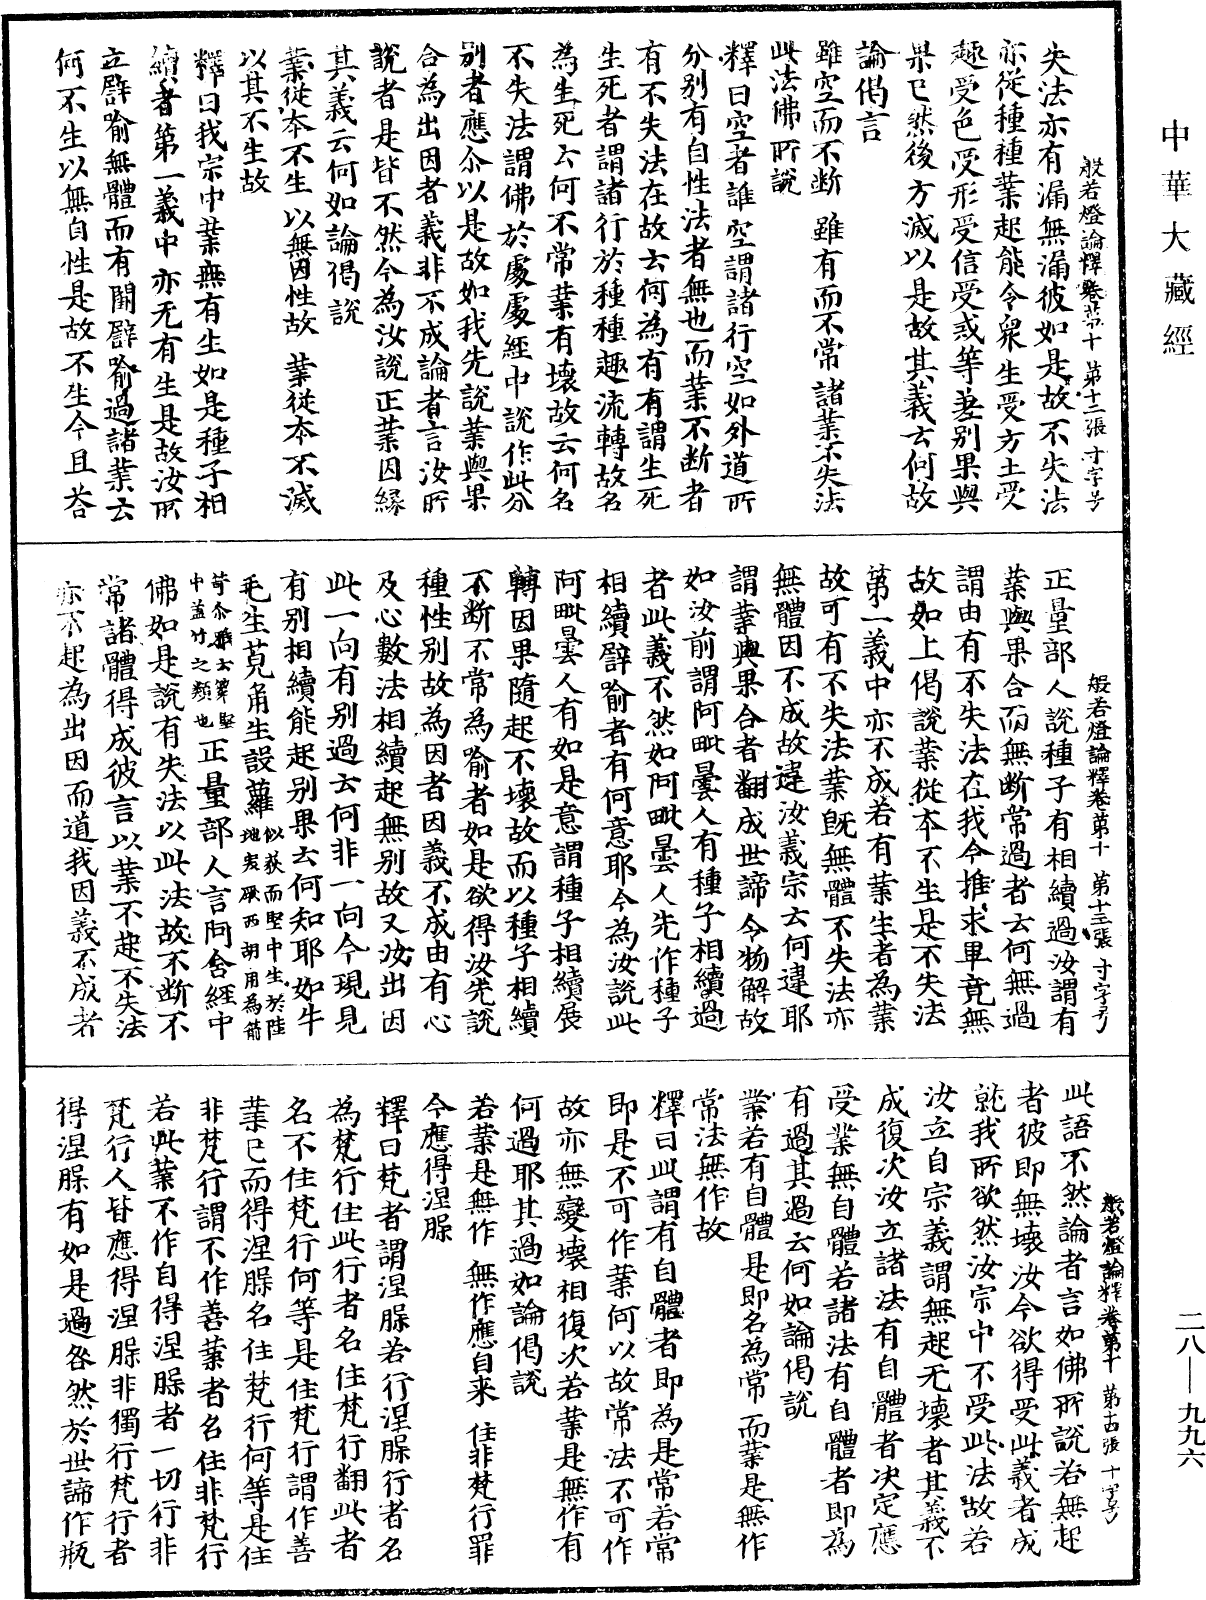 中華大藏經
般若燈論釋卷第十 第十二張 寸字号
失法亦有漏無漏彼如是故不失法
亦從種種業起能令衆生受方土受
趣受色受形受信受戒等差別果與
果已然後方滅以是故其義云何故
論偈言
雖空而不斷 雖有而不常 諸業不失法
此法佛所說
釋曰空者誰空謂諸行空如外道所
分別有自性法者無也而業不斷者
有不失法在故云何為有有謂生死
生死者謂諸行於種種趣流轉故名
為生死云何不常業有壞故云何名
不失法謂佛於處處經中說作此分
別者應尒以是故如我先說業與果
合為出因者義非不成論者言汝所
說者是皆不然今為汝說正業因緣
其義云何如論偈說
業從本不生 以無因性故 業從本不滅
以其不生故
釋曰我宗中業無有生如是種子相
續者第一義中亦无有生是故汝所
立譬喻無體而有闕譬喻過諸業云
何不生以無自性是故不生今且荅
般若燈論釋卷第十 第十三張 寸字号
正量部人說種子有相續過汝謂有
業與果合而無斷常過者云何無過
謂由有不失法在我今推求畢竟無
故如上偈說業從本不生是不失法
第一義中亦不成若有業生者為業
故可有不失法業旣無體不失法亦
無體因不成故違汝義宗云何違耶
謂業與果合者翻成世諦令物解故
如汝前謂阿毗曇人有種子相續過
者此義不然如阿毗曇人先作種子
相續譬喻者有何意耶今為汝說此
阿毗曇人有如是意謂種子相續展
轉因果隨起不壞故而以種子相續
不斷不常為喻者如是欲得汝先說
種性別故為因者因義不成由有心
及心數法相續起無別故又汝出因
此一向有別過云何非一向今現見
有別相續能起別果云何知耶如牛
毛生莧角生設蘿似荻而堅中生於陸地炭䥫西胡用為箭
苛尒雅云簟堅中蓋竹之類也正量部人言阿含經中
佛如是說有失法以此法故不斷不
常諸體得成彼言以業不起不失法
亦不起為出因而道我因義不成者
般若燈論釋卷第十 第十四張 寸字号
此語不然論者言如佛所說若無起
者彼即無壞汝今欲得受此義者成
就我所欲然汝宗中不受此法故若
汝立自宗義謂無起无壞者其義不
成復次汝立諸法有自體者決定應
受業無自體若諸法有自體者即為
有過其過云何如論偈說
業若有自體 是即名為常 而業是無作
常法無作故
釋曰此謂有自體者即為是常若常
即是不可作業何以故常法不可作
故亦無變壞相復次若業是無作有
何過耶其過如論偈說
若業是無作 無作應自來 住非梵行罪
今應得涅槃
釋曰梵者謂涅槃若行涅槃行者名
為梵行住此行者名住梵行翻此者
名不住梵行何等是住梵行謂作善
業已而得涅槃名住梵行何等是住
非梵行謂不作善業者名住非梵行
若此業不作自得涅槃者一切行非
梵行人皆應得涅槃非獨行梵行者
得涅槃有如是過咎然於世諦作瓶
二八—九九六